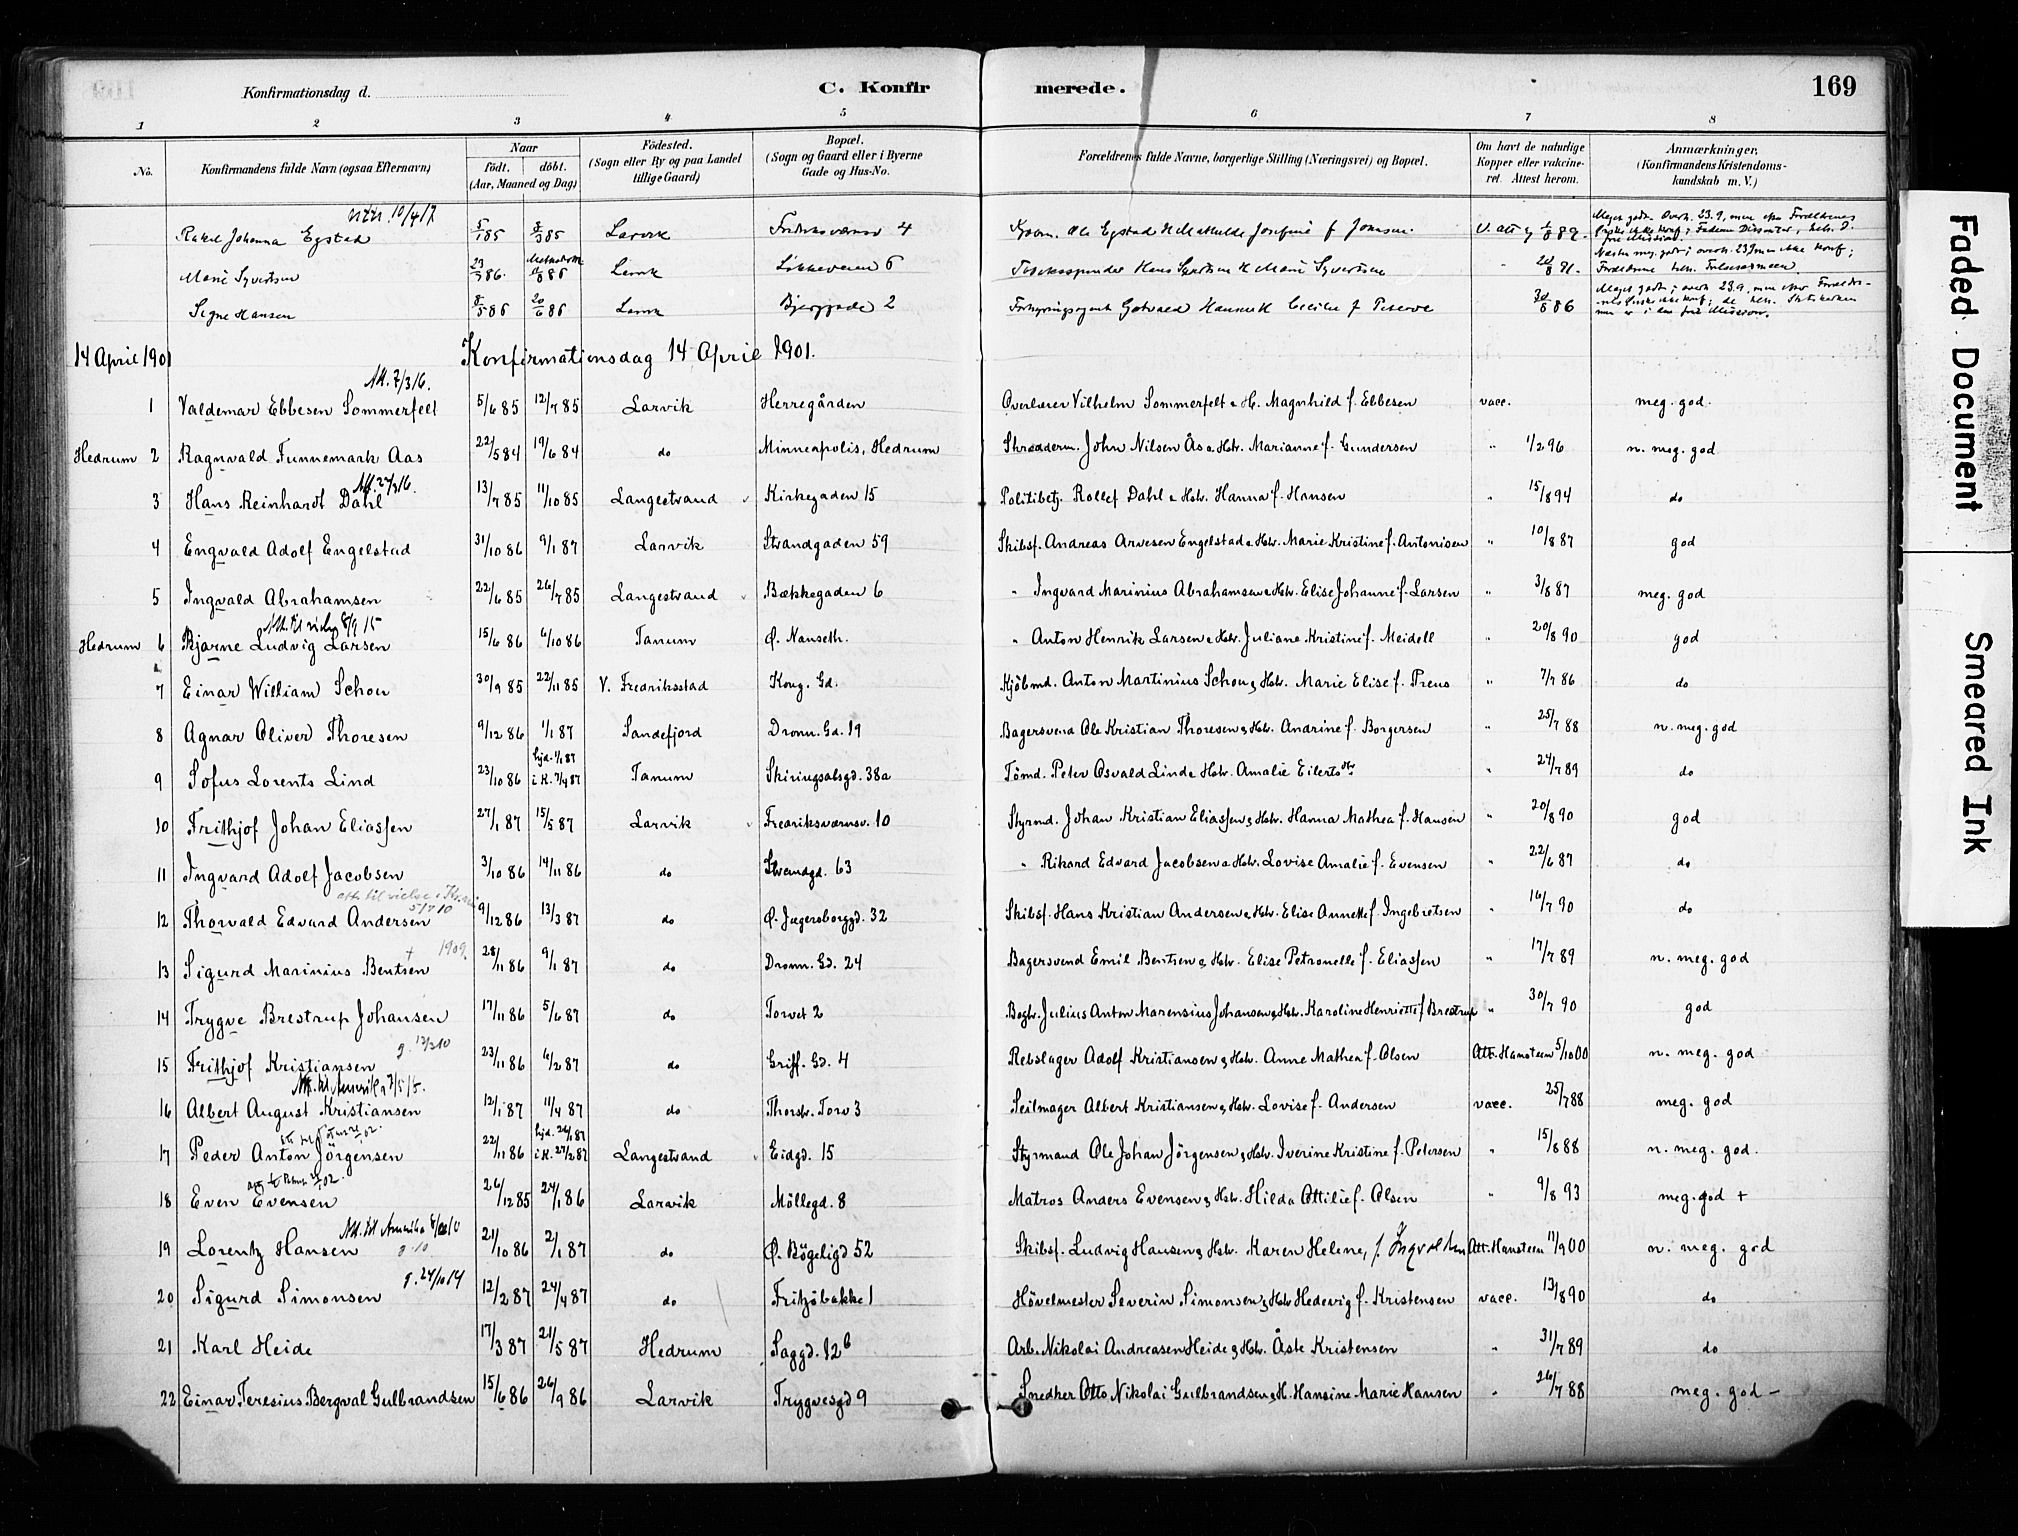 Konfirmationsdag d.
C. Konfirmerede.
169
1 2 3 4 5 6 7 8
No.
Konfirmandens fulde Navn (ogsaa Efternavn)
Naar født. døbt. (Aar, Maaned og Dag)
Fødested. (Sogn eller By og paa Landet tillige Gaard)
Bopæl. (Sogn og Gaard eller i Byerne Gade og Hus-No.
Forældrenes fulde Navne, borgerlige Stilling (Næringsvei) og Bopæl.
Om havt de naturlige Kopper eller vakcineret. Attest herom.
Anmærkninger, (Konfirmandens Kristendomskundskab m. V.)
10/4 17
Rakel Johanna Egstad 5/1 85 8/3 85 Larvik 4 Ole Egstad 89.
Marie Syvertsen 23/3 86. Larvik Løkkeveien 6 Hans Syvertsen Marie Syvertsen
Signe Hansen 8/5 86 20/6 86 Larvik 2 Hansen 86
14 April 1901 Konfirmationsdag 14 April 1901.
Att. 7/3 16.
1 Valdemar Ebbesen Sommerfelt 5/6 85 12/7 85 Larvik Herregården Overlærer Vilhelm Sommerfelt & H. Magnhild f. Ebbesen vacc. meg. god.
Hedrum 2 Ragnvald Funnemark Aas 22/5 84 19/6 84 do Minneapolis, Hedrum Skrædderm. John Nilsen Ås & Hstr. Marianne f. Gundersen " 1/2 96 n. meg. god
3 Hans Reinhardt Dahl 13/7 85 11/10 85 Langestrand Kirkegaden 15 Politibetj. Rollef Dahl & Hstr. Hanna f. Hansen " 15/8 94 do
4 Engvald Adolf Engelstad 31/10 86 9/1 87 Larvik Strandgaden 59 Skibsf. Andreas Arvesen Engelstad & Hstr. Marie Kristine f. Antonisen " 10/8 87 god
5 Ingvald Abrahamsen 22/6 85 26/7 85 Langestrand Bækkegaden 6 " Ingvard Marinius Abrahamsen & Hstr. Elise Johanne f. Larsen " 3/8 87 meg. god
8/9 15
Hedrum 6 Bjarne Ludvig Larsen 15/6 86 6/10 86 Tanum Ø. Nanseth. " Anton Henrik Larsen & Hstr. Juliane Kristine f. Meidell " 20/8 90 god
7 Einar William Schou 30/9 85 22/11 85 V. Fredriksstad Kong. Gd. Kjöbmd. Anton Martinius Schou & Hstr. Marie Elise f. Preus " 7/7 86 do
8 Agnar Oliver Thoresen 9/12 86 1/1 87 Sandefjord Dronn. Gd. 19 Bagersvend Ole Kristian Thoresen & Hstr. Andrine f. Borgersen " 25/7 88 n. meg. god
9 Sofus Lorents Lind 23/10 86 hjd. 1/1 87 i K. 7/4 87 Tanum Skiringsalsgd. 38a Tömd. Peter Osvald Lind & Hstr. Amalie Eilertsdtr " 24/7 89 do
10 Frithjof Johan Eliassen 27/1 87 15/5 87 Larvik Fredriksværnsv. 10 Styrmd. Johan Kristian Eliassen & Hstr. Hanna Mathea f. Hansen " 20/8 90 god
11 Ingvard Adolf Jacobsen 3/10 86 14/11 86 do Strandgd. 63 " Rikard Edvard Jacobsen & Hstr. Lovise Amalie f. Evensen " 22/6 87 do
att. til vielse i 5/7 10
12 Thorvald Edvard Andersen 9/12 86 13/3 87 do Ø. Jægersborggd. 32 Skibsf. Hans Kristian Andersen & Hstr. Elise Annette f. Ingebretsen " 16/7 90 do
† 1909.
13 Sigurd Marinius Bentsen 28/11 86 9/1 87 do Dronn. Gd. 24 Bagersvend Emil Bentsen & Hstr. Elise Petronelle f. Eliassen " 17/7 89 n. meg. god
14 Trygve Brestrup Johansen 17/11 86 5/6 87 do Torvet 2 Bogtr. Julius Anton Marensius Johansen & Hstr. Karoline Henriette f. Brestrup " 30/7 90 god
15 Frithjof Kristiansen 23/11 86 6/2 87 do Griff. Gd. 4 Rebslager Adolf Kristiansen & Hstr. Anne Mathea f. Olsen Att. Hansteen 5/10 00 n. meg. god
Att. til Amerika 7/5 15.
16 Albert August Kristiansen 12/1 87 11/4 87 do Thorstr. Torv 3 Seilmager Albert Kristiansen & Hstr. Lovise f. Andersen vacc. 25/7 88 meg. god
17 Peder Anton Jörgensen 22/11 86 hjd. 26/1 87 i K. 27/2 87 Langestrand Eidgd. 15 Styrmand Ole Johan Jörgensen & Hstr. Iverine Kristine f. Petersen " 15/8 88 n. meg. god.
18 Even Evensen 26/12 85 24/1 86 Larvik Möllegd. 8 Matros Anders Evensen & Hstr. Hilda Ottilie f. Olsen " 9/8 93 meg. god +
Att. til Amerika
19 Lorentz Hansen 21/10 86 2/1 87 do Ø. Bögeligd 52 Skibsf. Ludvig Hansen & Hstr. Karen Helene, f. Att. Hansteen 11/9 00 n. meg. god
g. 24/10 14
20 Sigurd Simonsen 12/2 87 24/4 87 do Fritzöbakke 1 Hövelmester Severin Simonsen & Hstr Hedevig f. Kristensen vacc. 13/8 90 do
21 Karl Heide 17/3 87 21/5 87 Hedrum Saggd. 12b Arb. Nikolai Andreasen Heide & Hstr. Åste Kristensen " 31/7 89 do
22 Einar Teresius Bergval Gulbrandsen 15/6 86 26/9 86 Larvik Trygvesgd 9 Snedker Otto Nikolai Gulbrandsen & H. Hansine Marie Hansen " 26/7 88 meg. god -
Faded Document
Smeared Ink